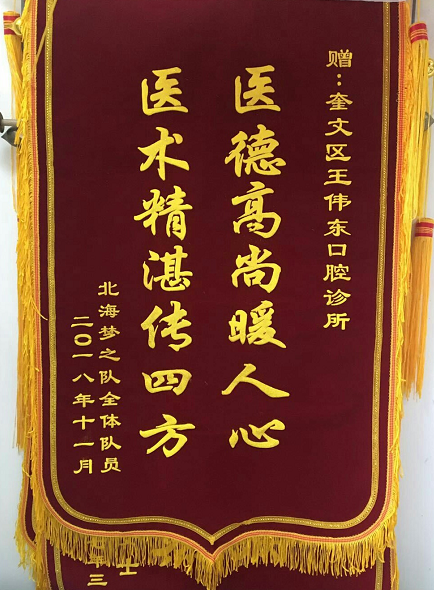 赠：奎文区王伟东口腔诊所
医德高尚暖人心
医术精湛传四方
北海梦之队全体队员
二〇一八年十一月
三